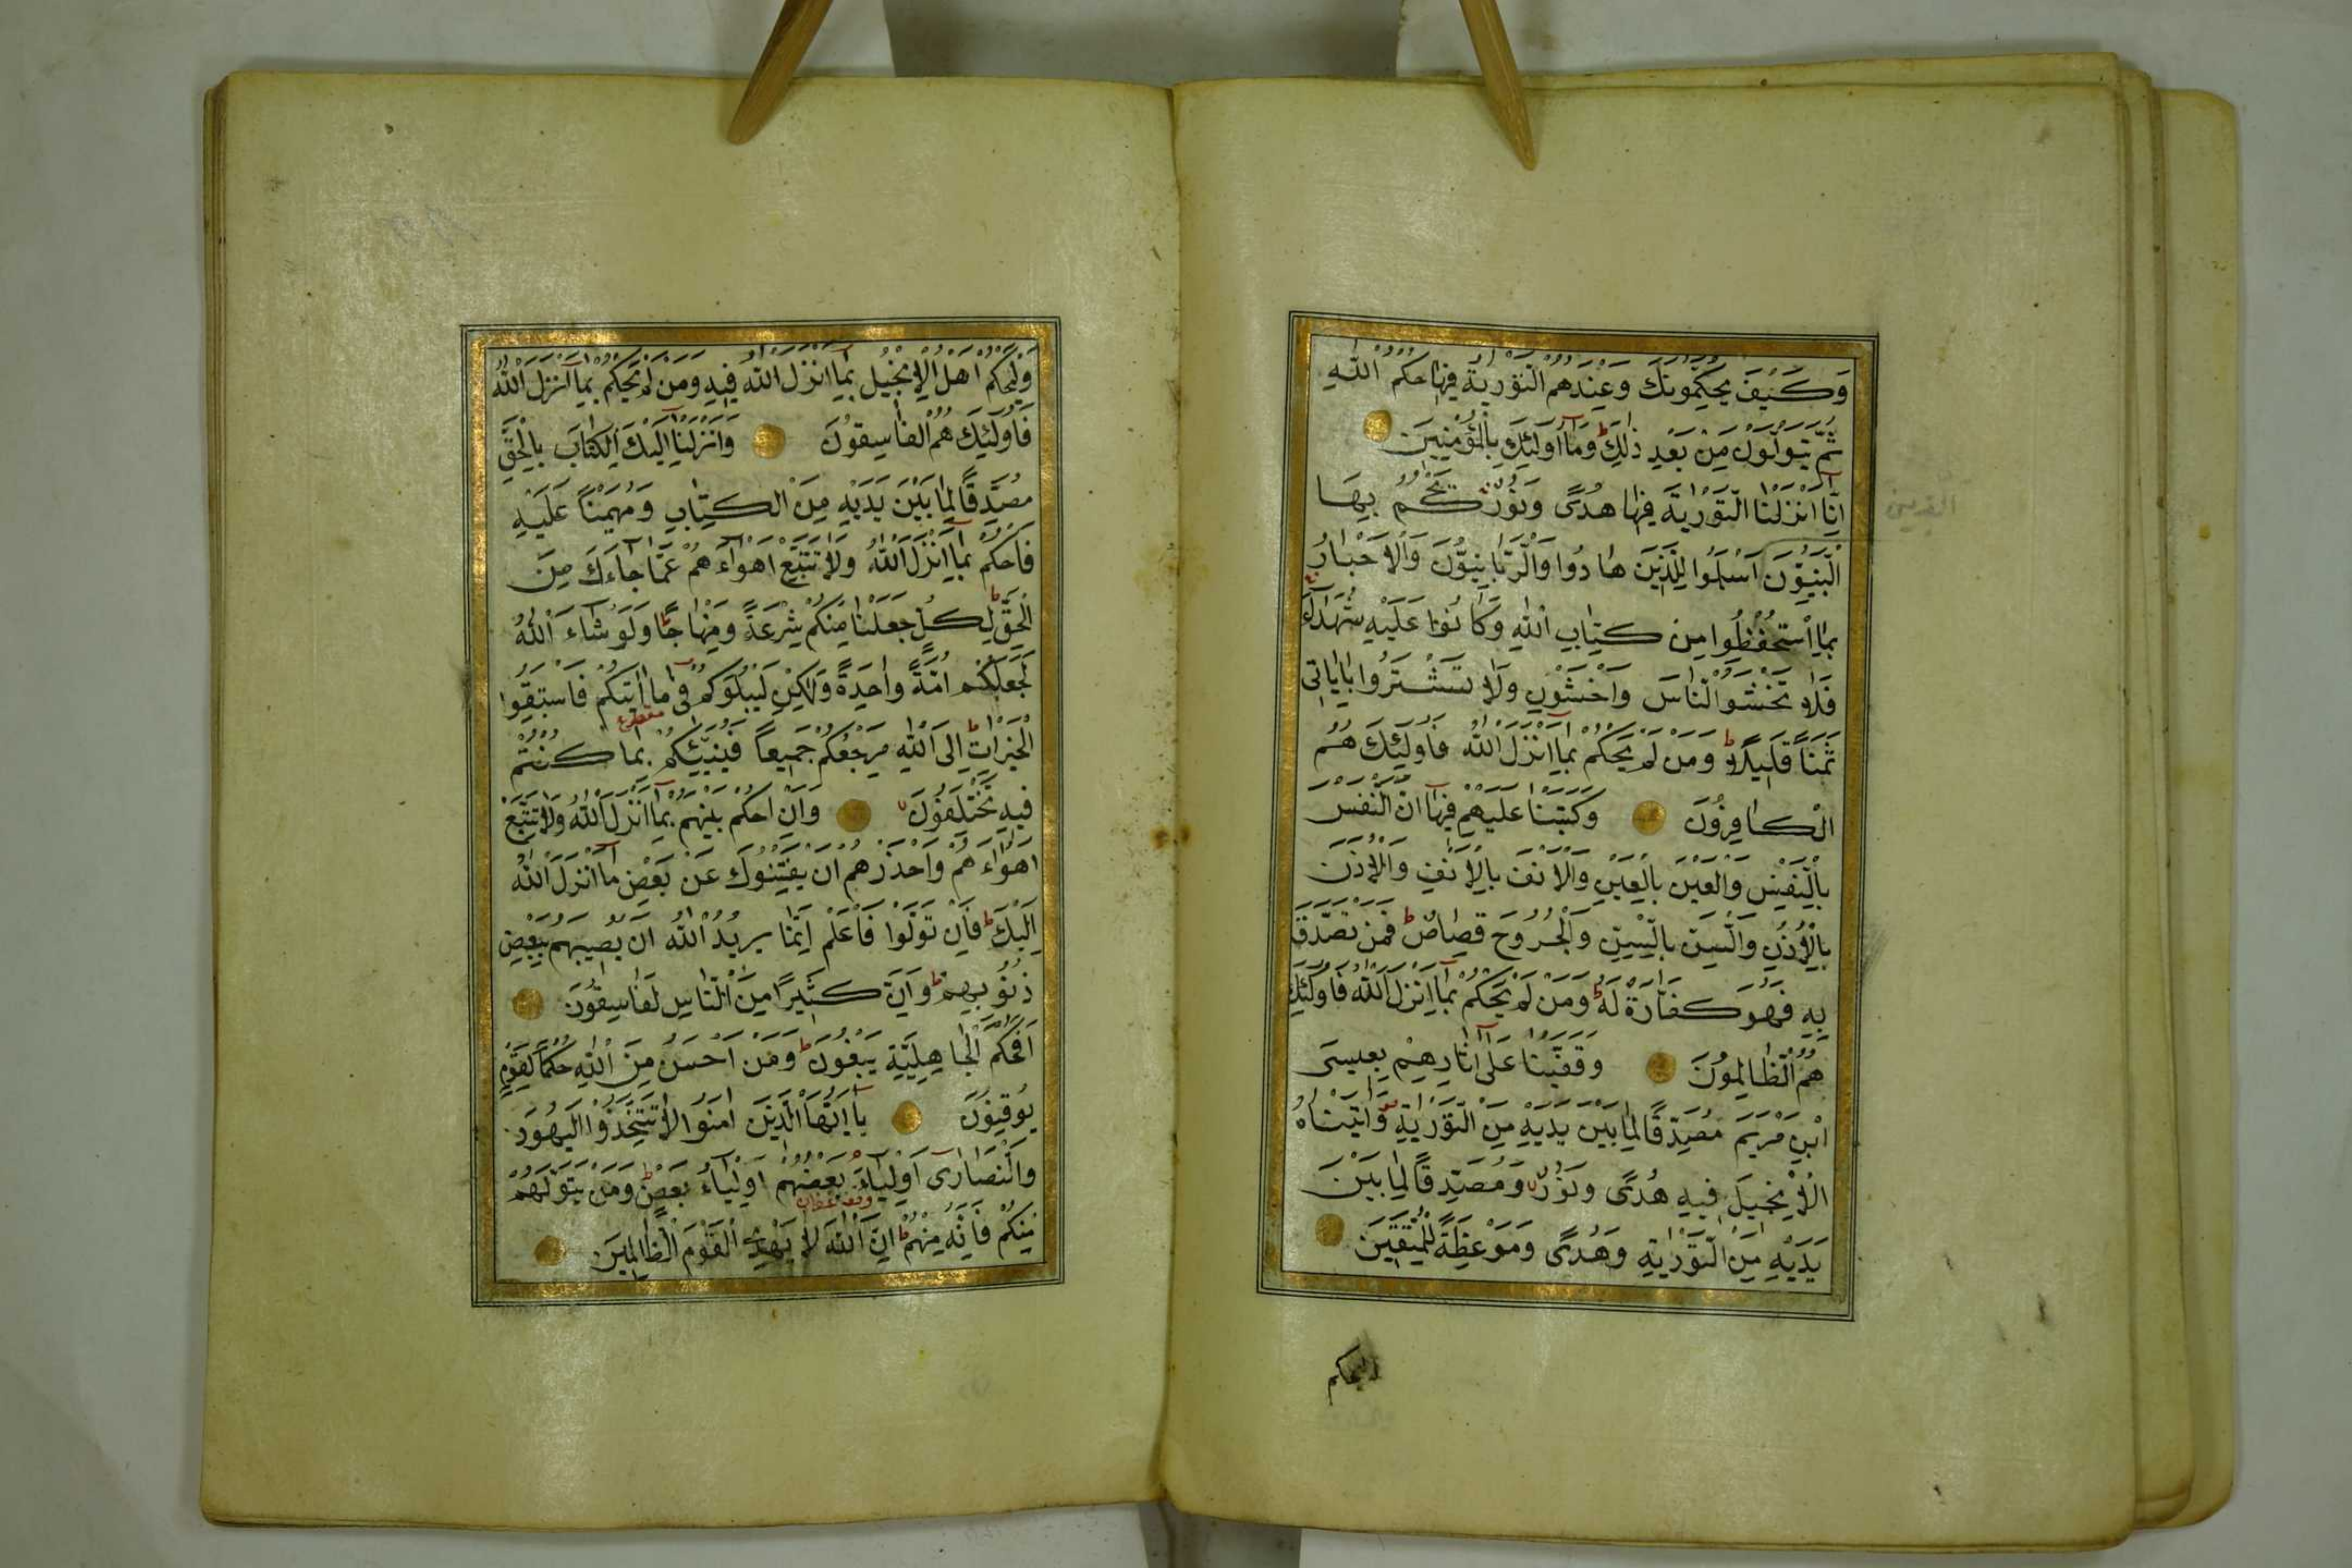 وَكَيْفَ يُحَكِّمُونَكَ وَعِنْدَهُمُ التَّوْرٰيةُ فِيهَا حُكْمُ اللّٰهِ
ثُمَّ يَتَوَلَّوْنَ مِنْ بَعْدِ ذٰلِكَ ط وَمَآ اُولٰئِكَ بِالْمُؤْمِنِينَ
اِنَّآ اَنْزَلْنَا التَّوْرٰيةَ فِيهَا هُدًى وَنُورٌ يَحْكُمُ بِهَا
النَّبِيُّونَ الَّذِينَ اَسْلَمُوا لِلَّذِينَ هَادُوا وَالرَّبَّانِيُّونَ وَالْاَحْبَارُ
بِمَا اسْتُحْفِظُوا مِنْ كِتَابِ اللّٰهِ وَكَانُوا عَلَيْهِ شُهَدَآءَ
فَلَا تَخْشَوُا النَّاسَ وَاخْشَوْنِ وَلَا تَشْتَرُوا بِاٰيَاتِى
ثَمَنًا قَلِيلًا ط وَمَنْ لَمْ يَحْكُمْ بِمَآ اَنْزَلَ اللّٰهُ فَاُولٰئِكَ هُمُ
الْكَافِرُونَ وَكَتَبْنَا عَلَيْهِمْ فِيهَآ اَنَّ النَّفْسَ
بِالنَّفْسِ وَالْعَيْنَ بِالْعَيْنِ وَالْاَنْفَ بِالْاَنْفِ وَالْاُذُنَ
بِالْاُذُنِ وَالسِّنَّ بِالسِّنِّ وَالْجُرُوحَ قِصَاصٌ ط فَمَنْ تَصَدَّقَ
بِهِ فَهُوَ كَفَّارَةٌ لَهُ ط وَمَنْ لَمْ يَحْكُمْ بِمَآ اَنْزَلَ اللّٰهُ فَاُولٰئِكَ
هُمُ الظَّالِمُونَ وَقَفَّيْنَا عَلٰٓى اٰثَارِهِمْ بِعِيسَى
ابْنِ مَرْيَمَ مُصَدِّقًا لِمَا بَيْنَ يَدَيْهِ مِنَ التَّوْرٰيةِ وَاٰتَيْنَاهُ
الْاِنْجِيلَ فِيهِ هُدًى وَنُورٌ وَمُصَدِّقًا لِمَا بَيْنَ
يَدَيْهِ مِنَ التَّوْرٰيةِ وَهُدًى وَمَوْعِظَةً لِلْمُتَّقِينَ
وليحكم
وَلْيَحْكُمْ اَهْلُ الْاِنْجِيلِ بِمَآ اَنْزَلَ اللّٰهُ فِيهِ وَمَنْ لَمْ يَحْكُمْ بِمَآ اَنْزَلَ اللّٰهُ
فَاُولٰئِكَ هُمُ الْفَاسِقُونَ وَاَنْزَلْنَآ اِلَيْكَ الْكِتَابَ بِالْحَقِّ
مُصَدِّقًا لِمَا بَيْنَ يَدَيْهِ مِنَ الْكِتَابِ وَمُهَيْمِنًا عَلَيْهِ
فَاحْكُمْ بِمَآ اَنْزَلَ اللّٰهُ وَلَا تَتَّبِعْ اَهْوَآءَهُمْ عَمَّا جَآءَكَ مِنَ
الْحَقِّ ط لِكُلٍّ جَعَلْنَا مِنْكُمْ شِرْعَةً وَمِنْهَاجًا ط وَلَوْ شَآءَ اللّٰهُ
لَجَعَلَكُمْ اُمَّةً وَاحِدَةً وَلٰكِنْ لِيَبْلُوَكُمْ فِى مَآ اٰتٰيكُمْ فَاسْتَبِقُوا
الْخَيْرَاتِ ط اِلَى اللّٰهِ مَرْجِعُكُمْ جَمِيعًا فَيُنَبِّئُكُمْ بِمَا كُنْتُمْ
فِيهِ تَخْتَلِفُونَ وَاَنِ احْكُمْ بَيْنَهُمْ بِمَآ اَنْزَلَ اللّٰهُ وَلَا تَتَّبِعْ
اَهْوَآءَهُمْ وَاحْذَرْهُمْ اَنْ يَفْتِنُوكَ عَنْ بَعْضِ مَآ اَنْزَلَ اللّٰهُ
اِلَيْكَ ط فَاِنْ تَوَلَّوْا فَاعْلَمْ اَنَّمَا يُرِيدُ اللّٰهُ اَنْ يُصِيبَهُمْ بِبَعْضِ
ذُنُوبِهِمْ ط وَاِنَّ كَثِيرًا مِنَ النَّاسِ لَفَاسِقُونَ
اَفَحُكْمَ الْجَاهِلِيَّةِ يَبْغُونَ ط وَمَنْ اَحْسَنُ مِنَ اللّٰهِ حُكْمًا لِقَوْمٍ
يُوقِنُونَ يَآ اَيُّهَا الَّذِينَ اٰمَنُوا لَا تَتَّخِذُوا الْيَهُودَ
وَالنَّصَارٰٓى اَوْلِيَآءَ بَعْضُهُمْ اَوْلِيَآءُ بَعْضٍ ط وَمَنْ يَتَوَلَّهُمْ
مِنْكُمْ فَاِنَّهُ مِنْهُمْ ط اِنَّ اللّٰهَ لَا يَهْدِى الْقَوْمَ الظَّالِمِينَ